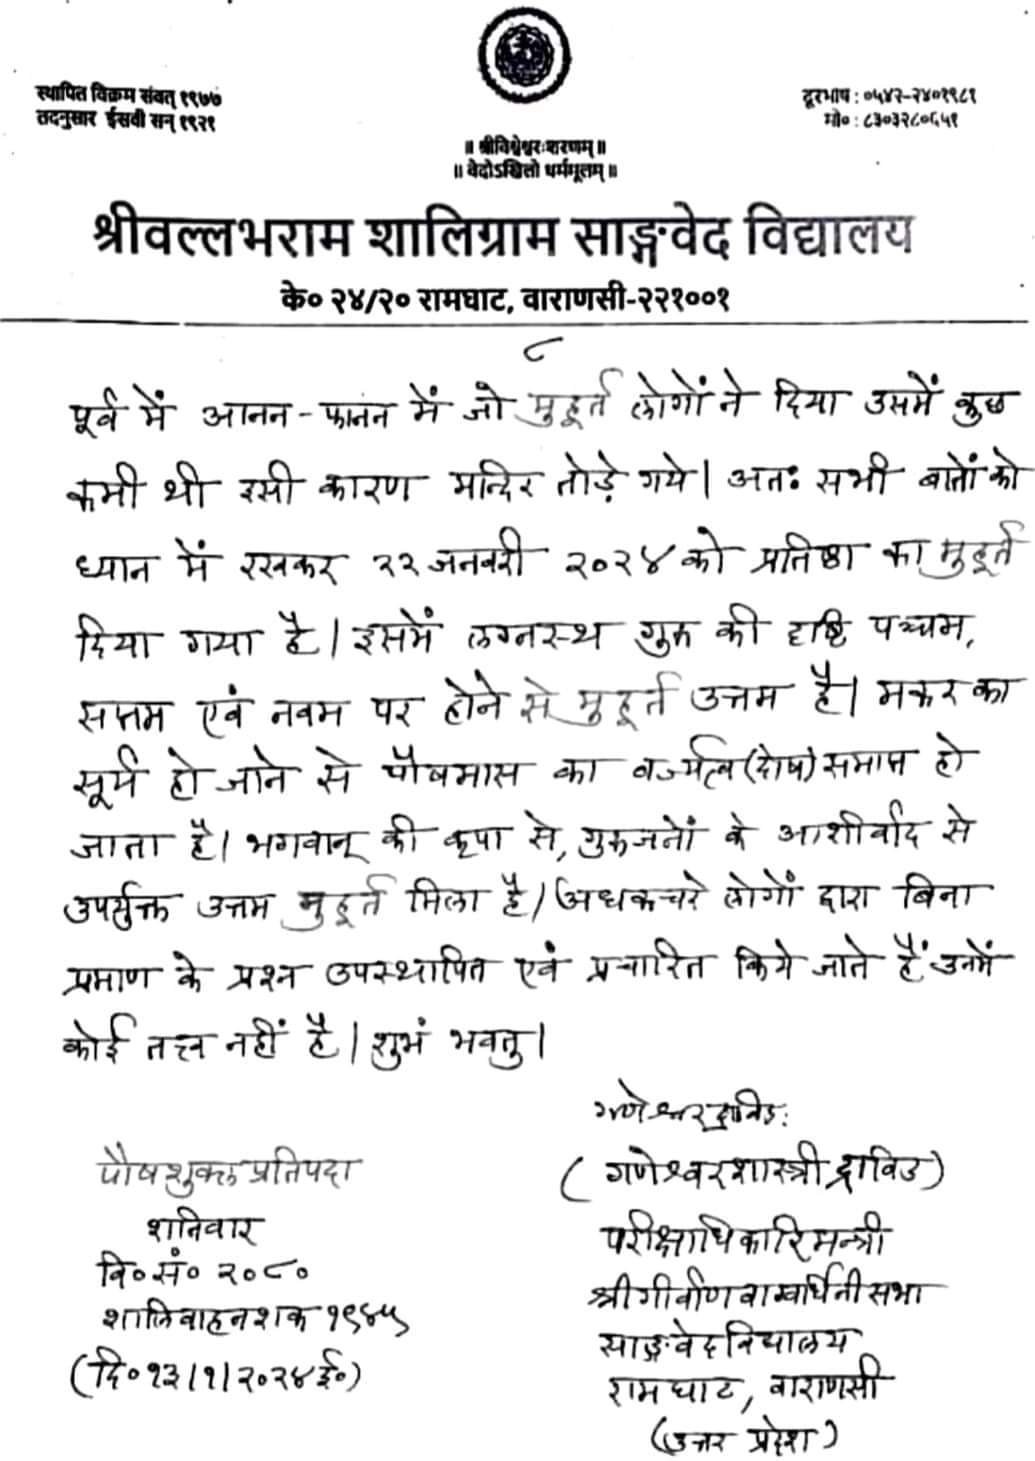 स्थापित विक्रम संवत् १९७७
तदनुसार ईसवी सन् १९२१
दूरभाष : ०५४२-२४०१९८१
मो० : ८३०३२८०६५१
॥ श्रीविश्वेश्वरःशरणम् ॥
॥ वेदोऽखिलो धर्ममूलम् ॥
श्रीवल्लभराम शालिग्राम साङ्गवेद विद्यालय
के० २४/२० रामघाट, वाराणसी-२२१००१
८
पूर्व में आनन-फानन में जो मुहूर्त लोगों ने दिया उसमें कुछ
कमी थी इसी कारण मन्दिर तोड़े गये। अतः सभी बातों को
ध्यान में रखकर २२ जनवरी २०२४ को प्रतिष्ठा का मुहूर्त
दिया गया है। इसमें लग्नस्थ गुरु की दृष्टि पञ्चम,
सप्तम एवं नवम पर होने से मुहूर्त उत्तम है। मकर का
सूर्य हो जाने से पौषमास का वर्ज्यत्व (दोष) समाप्त हो
जाता है। भगवान् की कृपा से, गुरुजनों के आशीर्वाद से
उपर्युक्त उत्तम मुहूर्त मिला है। अधकचरे लोगों द्वारा बिना
प्रमाण के प्रश्न उपस्थापित एवं प्रचारित किये जाते हैं उनमें
कोई तत्त्व नहीं है। शुभं भवतु।
गणेश्वरद्राविडः
(गणेश्वरशास्त्री द्राविड)
परीक्षाधिकारिमन्त्री
श्रीगीर्वाणवाग्वर्धिनीसभा
साङ्गवेदविद्यालय
रामघाट, वाराणसी
(उत्तर प्रदेश)
पौषशुक्ल प्रतिपदा
शनिवार
वि० सं० २०८०
शालिवाहनशक १९४५
(दि० १३।१।२०२४ ई०)